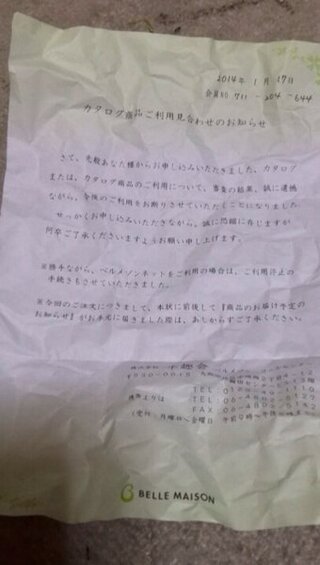 2014年 1月 17日
会員NO 711-204-644
カタログ商品ご利用見合わせのお知らせ
さて、先般あなた様からお申し込みいただきました、カタログ
または、カタログ商品のご利用について、審査の結果、誠に遺憾
ながら、今後のご利用をお断りさせていただくことになりました。
せっかくお申し込みいただきながら、誠に恐縮に存じますが
何卒ご了承くださいますようお願い申し上げます。
※勝手ながら、ベルメゾンネットをご利用の場合は、ご利用停止の
手続きもさせていただきました。
※今回のご注文につきまして、本状に前後して『商品のお届け予定の
お知らせ』がお手元に届きました際は、あしからずご了承ください。
株式会社 千趣会
〒530-0015
TEL:
携帯よりは TEL:06-
FAX:06-
(受付:月曜日〜金曜日 午前9時〜午後
BELLE MAISON